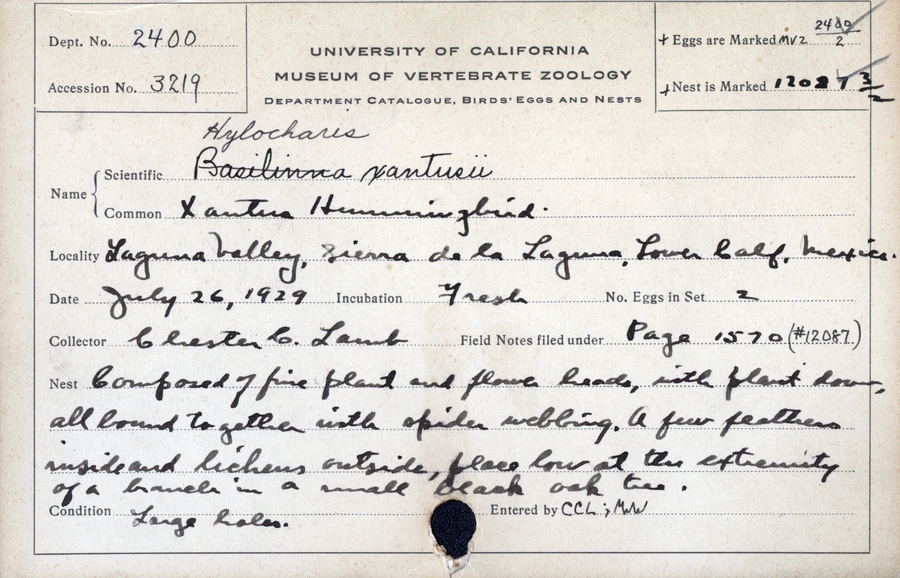 Dept. No. 2400
Accession No. 3219
UNIVERSITY OF CALIFORNIA
MUSEUM OF VERTEBRATE ZOOLOGY
DEPARTMENT CATALOGUE, BIRDS' EGGS AND NESTS
2400
+ Eggs are Marked MVZ 2
+ Nest is Marked 12087 3/2
Hylocharis
Name { Scientific Basilinna xantusii
Common Xantus Hummingbird.
Locality Laguna Valley, Sierra de la Laguna, Lower Calf, Mexico.
Date July 26, 1929 Incubation Fresh No. Eggs in Set 2
Collector Chester C. Lamb Field Notes filed under Page 1570 (#12087)
Nest Composed of fine plant and flower heads, with plant down,
all bound together with spider webbing. A few feathers
inside and lichens outside, place low at the extremity
of a branch in a small black oak tree.
Condition Large holes. Entered by CCL;